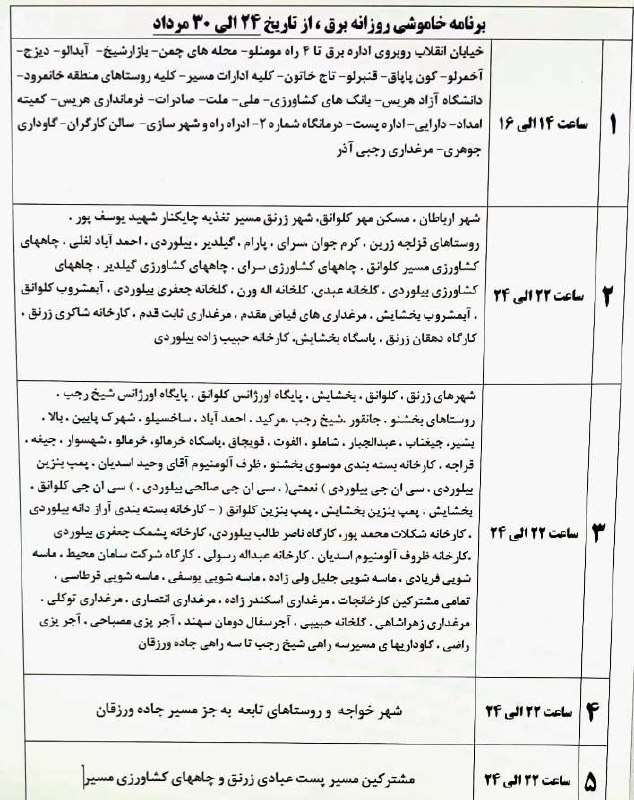 برنامه خاموشی روزانه برق ، از تاریخ ۲۴ الی ۳۰ مرداد
۱
ساعت ۱۴ الی ۱۶
خیابان انقلاب روبروی اداره برق تا ۴ راه مومنلو- محله های چمن- بازارشیخ- آبدالو- دیزج-
آخمرلو- کون پاپاق- قنبرلو- تاج خاتون- کلیه ادارات مسیر- کلیه روستاهای منطقه خانمرود-
دانشگاه آزاد هریس- بانک های کشاورزی- ملی- ملت- صادرات- فرمانداری هریس- کمیته
امداد- دارایی- اداره پست- درمانگاه شماره ۲- ادراه راه و شهر سازی- سالن کارگران- گاوداری
جوهری- مرغداری رجبی آذر
۲
ساعت ۲۲ الی ۲۴
شهر ارباطان ، مسکن مهر کلوانق، شهر زرنق مسیر تغذیه چایکنار شهید یوسف پور .
روستاهای قزلجه زرین ، کرم جوان ،سرای ، پارام ، گیلدیر ، بیلوردی ، احمد آباد لغلی ، چاههای
کشاورزی مسیر کلوانق ، چاههای کشاورزی سرای ، چاههای کشاورزی گیلدیر ، چاههای
کشاورزی بیلوردی ، گلخانه عبدی، گلخانه اله ورن ، گلخانه جعفری بیلوردی ، آبمشروب کلوانق
، آبمشروب بخشایش ، مرغداری های فیاض مقدم ، مرغداری ثابت قدم ، کارخانه شاکری زرنق ،
کارگاه دهقان زرنق ، پاسگاه بخشایش، کارخانه حبیب زاده بیلوردی
۳
ساعت ۲۲ الی ۲۴
شهرهای زرنق ، کلوانق ، بخشایش ، پایگاه اورژانس کلوانق ، پایگاه اورژانس شیخ رجب .
روستاهای بخشنو ، جانقور ،شیخ رجب ،مرکید . احمد آباد ، ساخسیلو ، شهرک پایین ، بالا ،
بشیر، جیغناب ، عبدالجبار ، شاملو ، الفوت ، قویجاق ،پاسگاه خرمالو، خرمالو ، شهسوار ، جیغه ،
قراجه ، کارخانه بسته بندی موسوی بخشنو ، ظرف آلومنیوم آقای وحید اسدیان ، پمپ بنزین
بیلوردی ، سی ان جی بیلوردی ) نعمتی( ، سی ان جی صالحی بیلوردی ، ) سی ان جی کلوانق ،
بخشایش ، پمپ بنزین بخشایش ، پمپ بنزین کلوانق ( – کارخانه بسته بندی آراز دانه بیلوردی
، کارخانه شکلات محمد پور، کارگاه ناصر طالب بیلوردی، کارخانه پشمک جعفری بیلوردی
،کارخانه ظروف آلومنیوم اسدیان ، کارخانه عبداله رسولی ، کارگاه شرکت سامان محیط ، ماسه
شویی فریادی ، ماسه شویی جلیل ولی زاده ، ماسه شویی یوسفی ، ماسه شویی قرطاسی ،
تمامی مشترکین کارخانجات ، مرغداری اسکندر ژاده ، مرغداری انتصاری ، مرغداری توکلی .
مرغداری زهراشاهی ، گلخانه حبیبی . آجرسفال دومان سهند ، آجر پزی مصباحی ، آجر پزی
راضی ، گاوداریها ی مسیرسه راهی شیخ رجب تا سه راهی جاده ورزقان
۴
ساعت ۲۲ الی ۲۴
شهر خواجه و روستاهای تابعه به جز مسیر جاده ورزقان
۵
ساعت ۲۲ الی ۲۴
مشترکین مسیر پست عبادی زرنق و چاههای کشاورزی مسیر